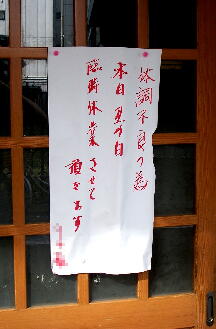 体調不良の為
本日 黒の日
臨時休業 させて
頂きます